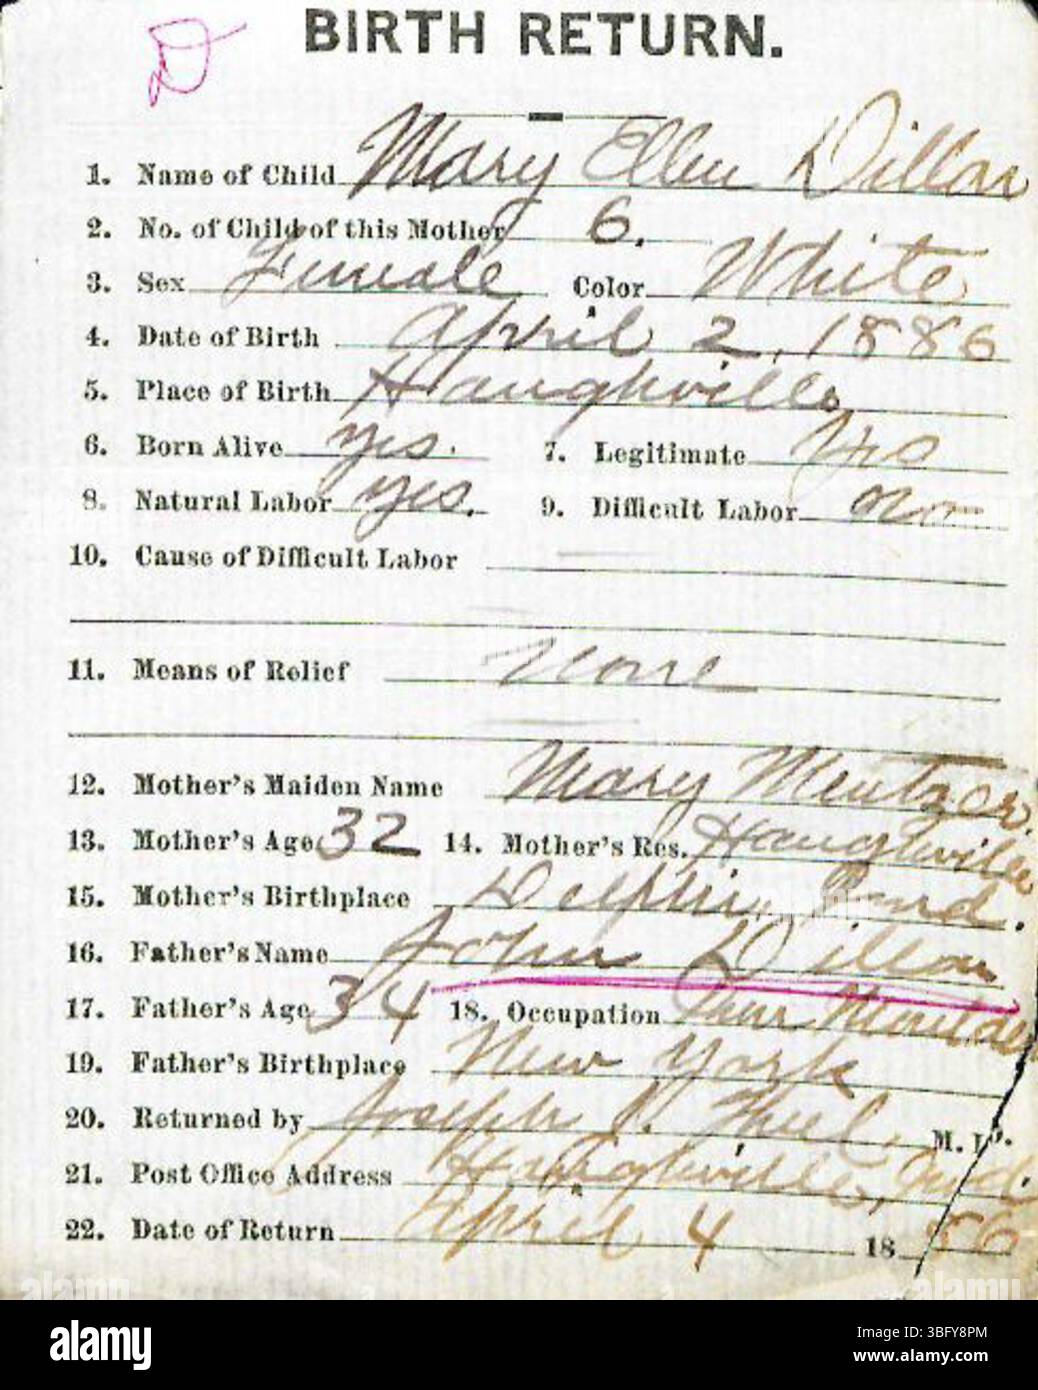 D
BIRTH RETURN.
1. Name of Child Mary Ellen Dillon
2. No. of Child of this Mother 6.
3. Sex Female Color White
4. Date of Birth April 2, 1886
5. Place of Birth Haughville
6. Born Alive yes. 7. Legitimate Yes
8. Natural Labor yes. 9. Difficult Labor no
10. Cause of Difficult Labor
11. Means of Relief None
12. Mother's Maiden Name Mary Mentzer.
13. Mother's Age 32 14. Mother's Res. Haughville
15. Mother's Birthplace Delphi, Ind.
16. Father's Name John Dillon
17. Father's Age 34 18. Occupation Moulder
19. Father's Birthplace New York
20. Returned by Joseph M. D.
21. Post Office Address Haughville, Ind.
22. Date of Return April 4 1886
alamy alamy
alamy
Image ID: 3BFY8PM
www.alamy.com